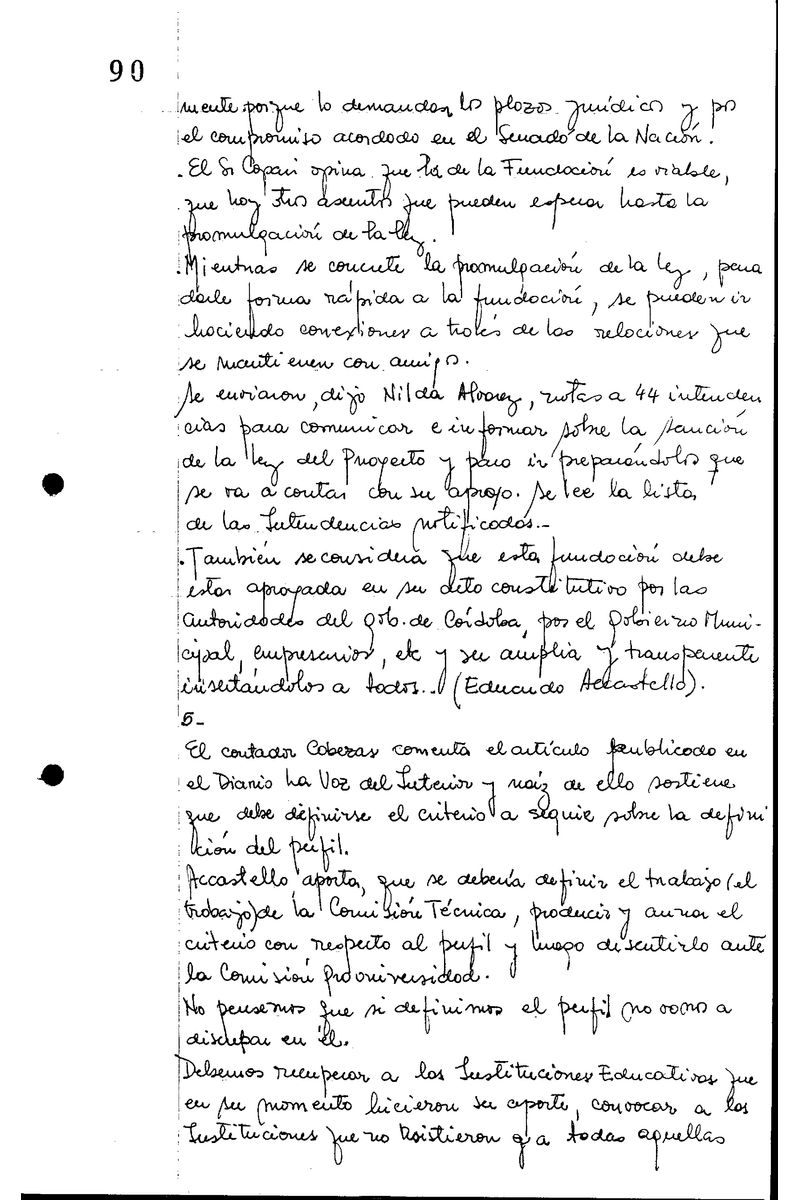 90
mente porque lo demandan los plazos jurídicos y por
el compromiso acordado en el Senado de la Nación.
. El Sr Copari opina que la de la Fundación es viable,
que hay otros asuntos que pueden esperar hasta la
promulgación de la ley.
. Mientras se concrete la promulgación de la ley, para
darle forma rápida a la fundación, se pueden ir
haciendo conexiones a través de las relaciones que
se mantienen con amigos.
Se enviaron, dijo Nilda Alvarez, notas a 44 intenden
cias para comunicar e informar sobre la sanción
de la ley del Proyecto y para ir preparándolos que
se va a contar con su apoyo. Se lee la lista
de las Intendencias notificadas.-
. También se considera que esta fundación debe
estar apoyada en su acto constitutivo por las
autoridades del gob. de Córdoba, por el gobierno Muni-
cipal, empresarios, etc y ser amplia y transparente
insertándolos a todos... (Eduardo Accastello).
5-
El contador Cabezas comenta el artículo publicado en
el Diario La Voz del Interior y raíz de ello sostiene
que debe definirse el criterio a seguir sobre la defini
ción del perfil.
Accastello aporta, que se debería definir el trabajo (el
trabajo) de la Comisión Técnica, producir y aunar el
criterio con respecto al perfil y luego discutirlo ante
la Comisión Prouniversidad.
No pensemos que si definimos el perfil no vamos a
discrepar en él.
Debemos recuperar a las Instituciones Educativas que
en su momento hicieron su aporte, convocar a las
Instituciones que no asistieron y a todas aquellas